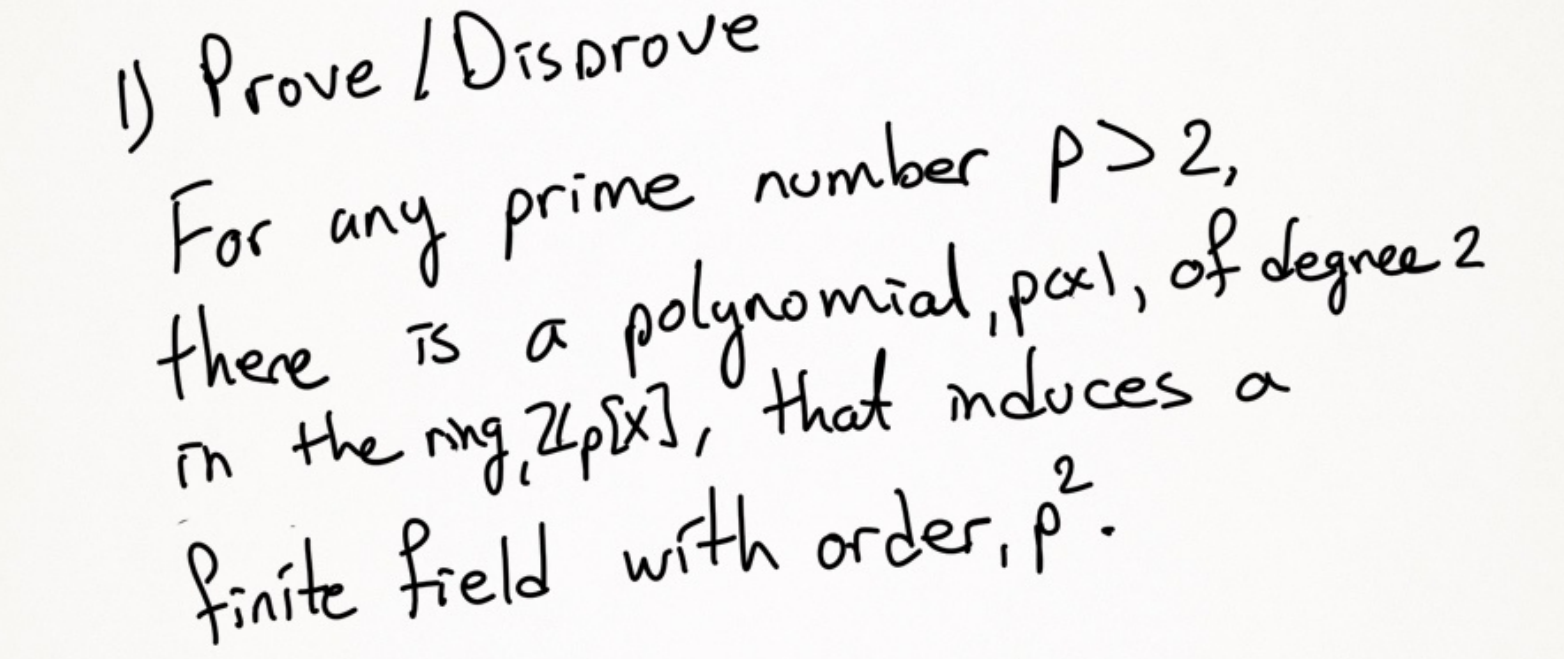 1) Prove / Disprove
For any prime number p > 2,
there is a polynomial, p(x), of degree 2
in the ring, ℤp[x], that induces a
finite field with order, p².